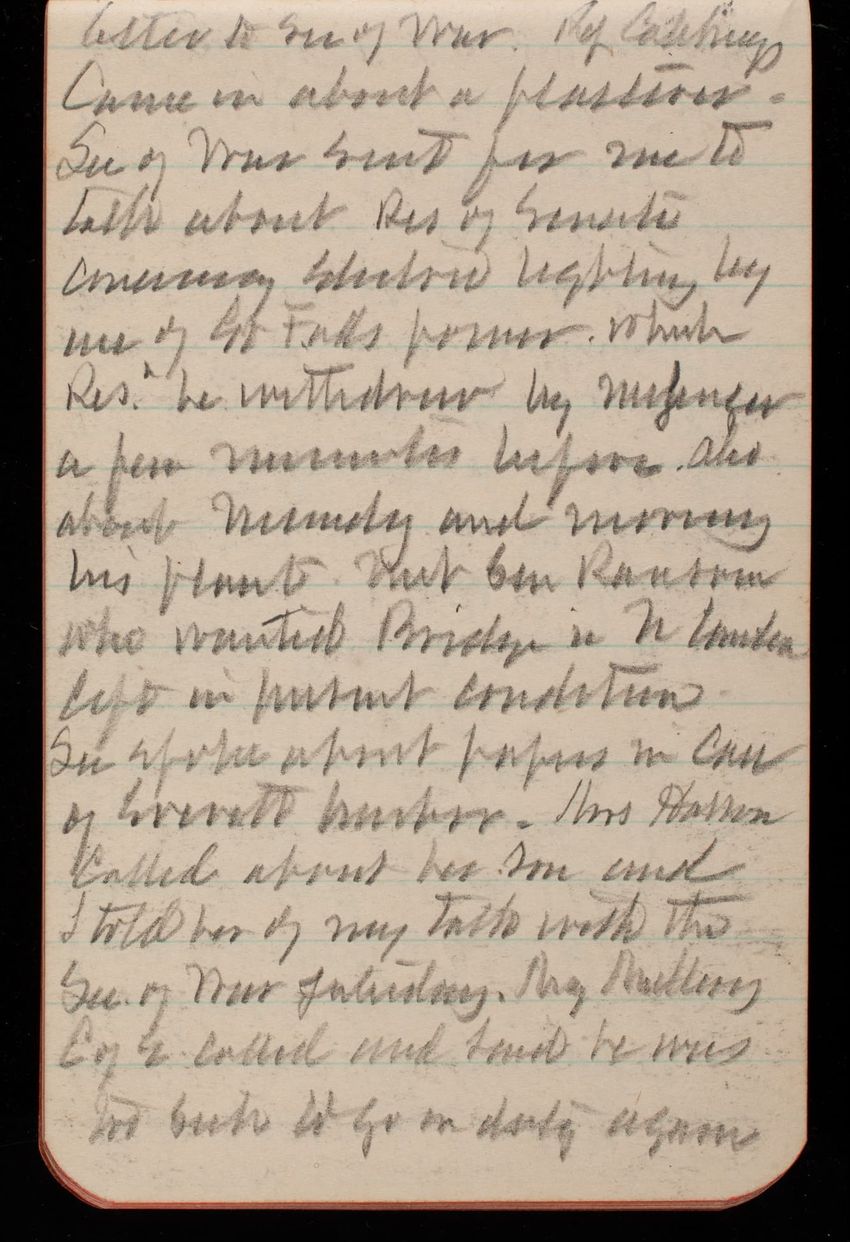 letter to Sec of War. Rep
Came in about a
Sec of War sent for me to
talk about Res of Senate
concerning Electric lighting by
use of Gt Falls power. which
Res. he withdrew by messenger
a few minutes before. also
about and moving
his plant. Met Gen Ransom
who wanted Bridge in N
left in present condition
Sec spoke about papers in Case
of Everett harbor - Mrs
Called about her Son and
I told her of my talk with the
Sec. of War Saturday.
C of E called and said he was
too sick to go on duty again